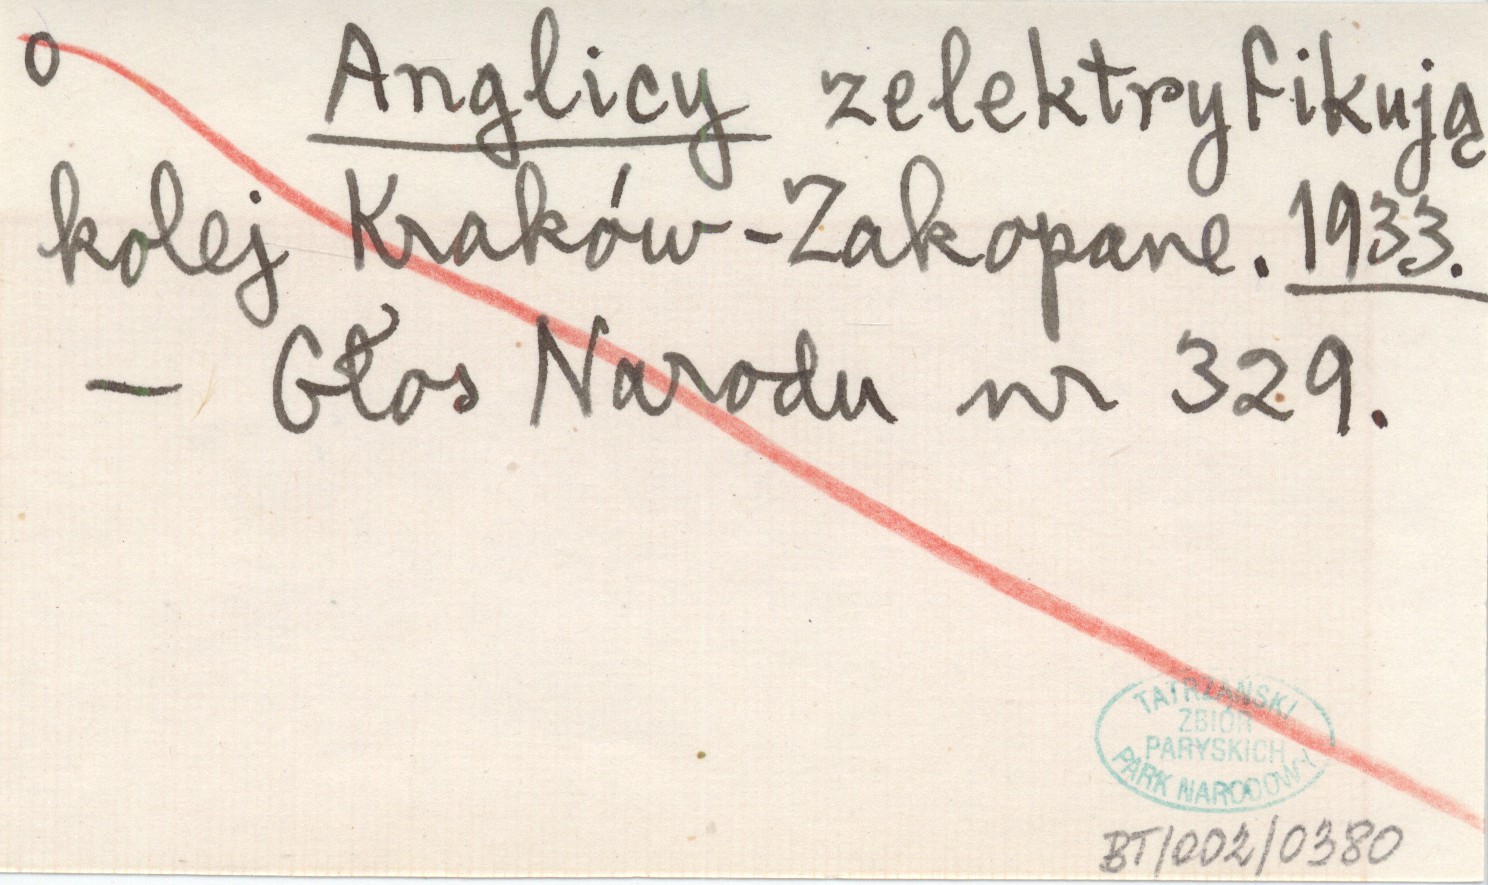 o Anglicy zelektryfikują
kolej Kraków-Zakopane. 1933.
— Głos Narodu nr 329.
TATRZAŃSKI
ZBIÓR
PARYSKICH
PARK NARODOWY
BT/002/0380